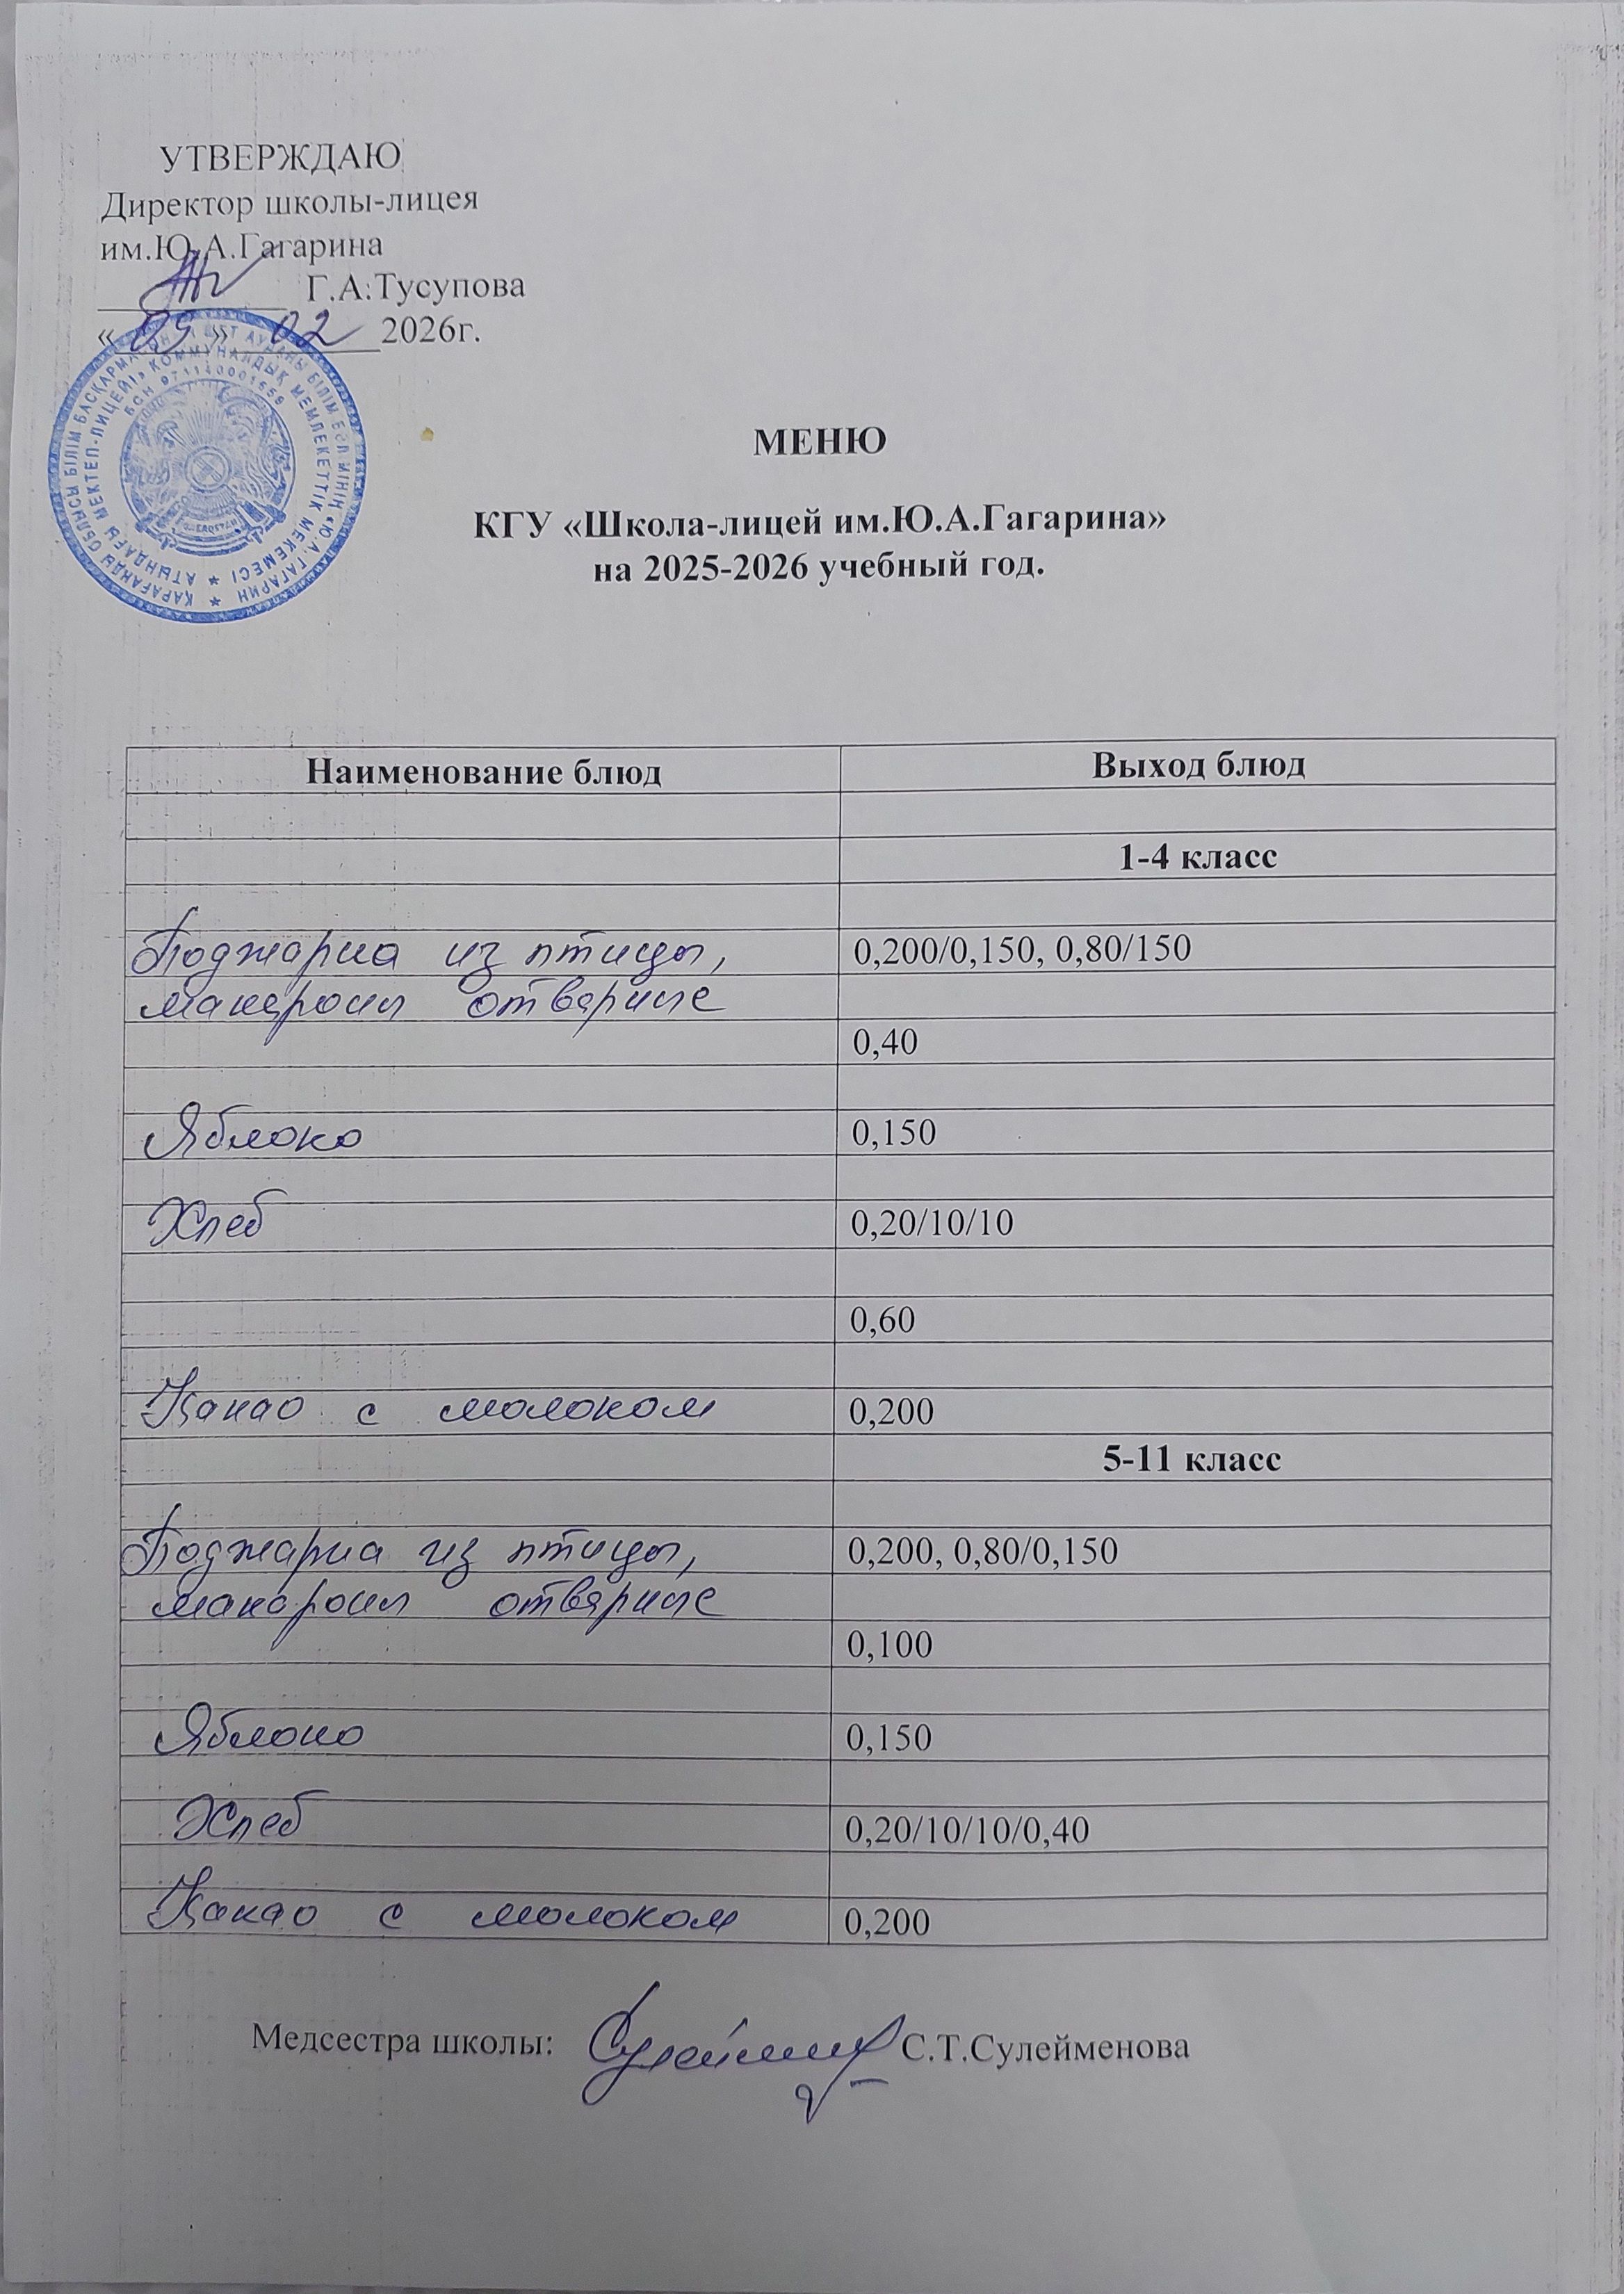 УТВЕРЖДАЮ
Директор школы-лицея
им.Ю.А.Гагарина
Г.А.Тусупова
« 09 » 02 2026г.
БСН 971140001659
МЕНЮ
КГУ «Школа-лицей им.Ю.А.Гагарина»
на 2025-2026 учебный год.
Наименование блюд Выход блюд
1-4 класс
Поджарка из птицы, 0,200/0,150, 0,80/150
макароны отварные
0,40
Яблоко 0,150
Хлеб 0,20/10/10
0,60
Какао с молоком 0,200
5-11 класс
Поджарка из птицы, 0,200, 0,80/0,150
макароны отварные
0,100
Яблоко 0,150
Хлеб 0,20/10/10/0,40
Какао с молоком 0,200
Медсестра школы: С.Т.Сулейменова